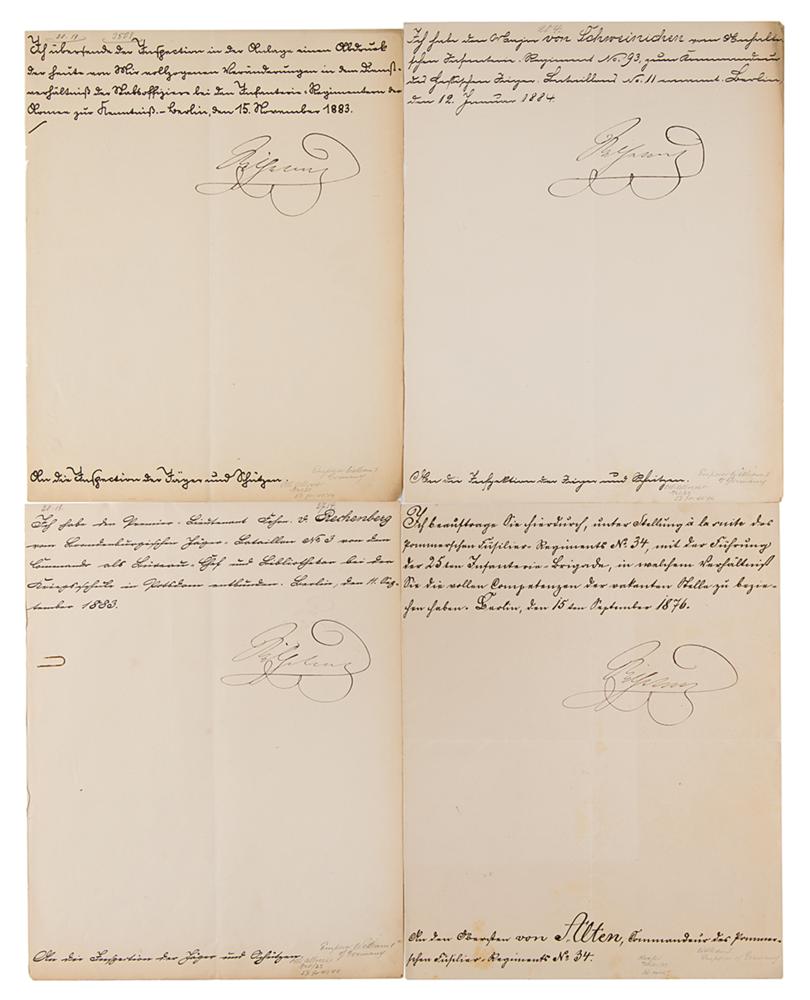 Ich übersende der Inspection in der Anlage einen Abdruck
der heute von Mir vollzogenen Veränderungen in den Dienst-
verhältniß der Stabsoffiziere bei den Infanterie-Regimentern der
Armee zur Kenntniß. - Berlin, den 15. November 1883.
Wilhelm
An die Inspection der Jäger und Schützen.
Emperor William I
of Germany
Ich habe den Major von Schweinichen vom Anhalti-
schen Infanterie-Regiment No. 93, zum Kommandeur
des Hessischen Jäger-Bataillons No. 11 ernannt. Berlin,
den 12. Januar 1884.
Wilhelm
An die Inspektion der Jäger und Schützen.
Emperor William I
of Germany
Ich habe den Premier-Lieutenant Frhrn. v. Rechenberg
vom Brandenburgischen Jäger-Bataillon No 3 von dem
Commando als Bureau-Chef und Bibliothekar bei der
Kriegsschule in Potsdam entbunden. Berlin, den 11. Sep-
tember 1883.
Wilhelm
An die Inspection der Jäger und Schützen
Emperor William I
of Germany
Ich beauftrage Sie hierdurch, unter Stellung à la suite des
Pommerschen Füsilier-Regiments No. 34, mit der Führung
der 25ten Infanterie-Brigade, in welchem Verhältniß
Sie die vollen Competenzen der vakanten Stelle zu bezie-
hen haben. Berlin, den 15ten September 1876.
Wilhelm
An den Obersten von Alten, Commandeur des Pommer-
schen Füsilier-Regiments No. 34.
William I
Emperor of Germany